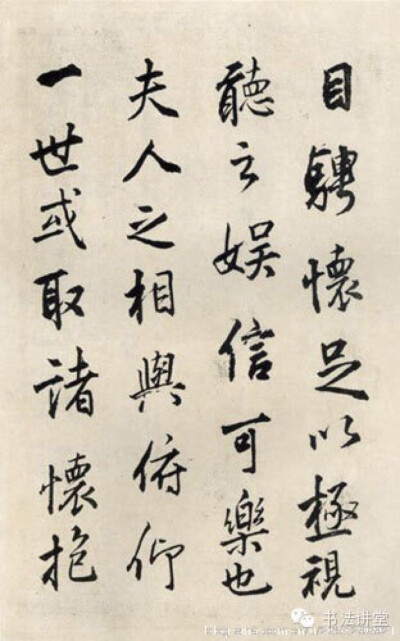 目騁懷足以極視
聽之娱信可樂也
夫人之相與俯仰
一世或取諸懷抱
书法讲堂